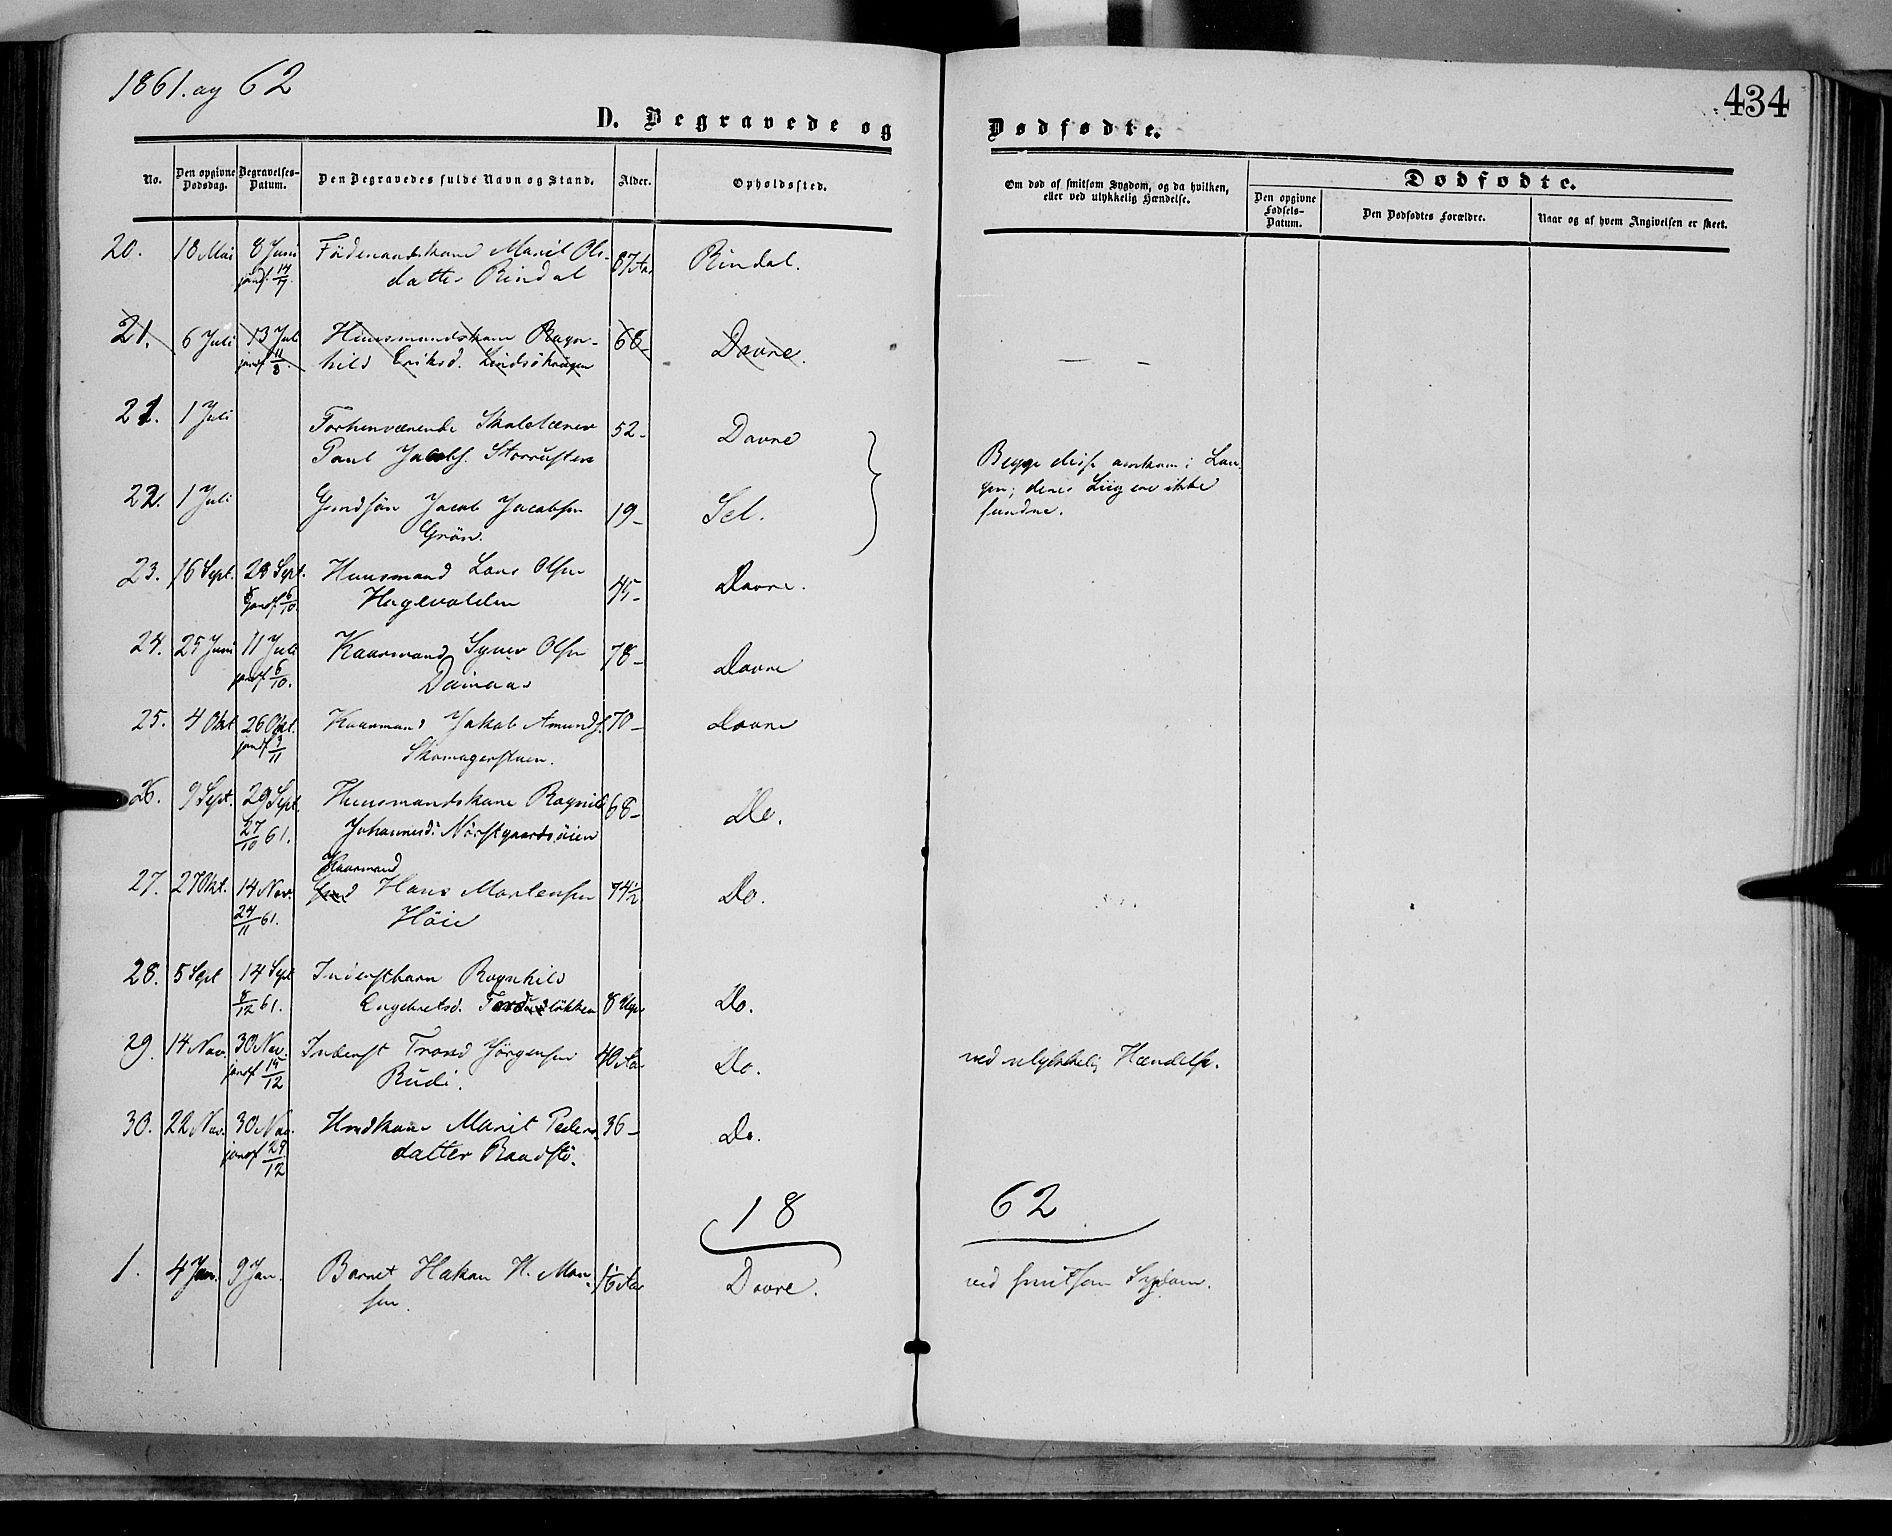 1861. og 62
434
D. Begravede og Dødfødte.
No.
Den opgivne Dødsdag.
Begravelses-Datum.
Den Begravedes fulde Navn og Stand.
Alder.
Opholdssted.
Om død af smitsom Sygdom, og da hvilken,
eller ved ulykkelig Hændelse.
Dødfødte.
Den opgivne Fødsels-Datum.
Den Dødfødtes Forældre.
Naar og af hvem Angivelsen er skeet.
20. 18 Mai 8 Juni Føderaadskone Marit Ols- 87 Aar Rindal.
jordf. 14/7. datter Rindal
21. 6 Juli 13 Juli Huusmandskone Ragn- 68- Dovre.
jordf 11/8. hild Eriksd.
21. 1 Juli Forhenværende Skolelærer 52- Dovre
Paul Jacobs. Storrusten
22. 1 Juli Jacob Jacobsen 19- Sel.
Grøn.
Begge disse omkom i Lau-
gen; deres Liig ere ikke
fundne.
23. 16 Sept. 28 Sept. Huusmand Lars Olsen 45- Dovre.
jordf 6/10. Hagevolden
24. 25 Juni 11 Juli Kaarmand Syver Olsen 78- Dovre
jordf 6/10. Dombaas
25. 4 Okt 26 Okt. Kaarmand Jakob Amunds. 70- Dovre
jordf 3/11 Skomagerstuen.
26. 9 Sept. 29 Sept. Huusmandskone Ragnild 68- Do.
27/10 61. Johannesd. Norstgaardsøien
27. 27 Okt. 14 Nov. Kaarmand Hans Mortensen 74½ Do.
24/11 61. Høie
28. 5 Sept 14 Sept Inderstbarn Ragnhild
8/12 61. Engebretsd. 8 Uger Do.
29. 14 Nov. 30 Nov. Inderst Trond Jørgensen 40 Aar Do. ved ulykkelig Hændelse.
jordf 14/12 Rudi.
30. 22 Nov. 30 Nov. Marit Peders- 36- Do.
jordf 29/12 datter Raadstø.
18 62
1. 4 Jan. 9 Jan. Barnet Hakon H. Mon- 1/6 Aar Dovre. ved smitsom Sygdom.
sen.